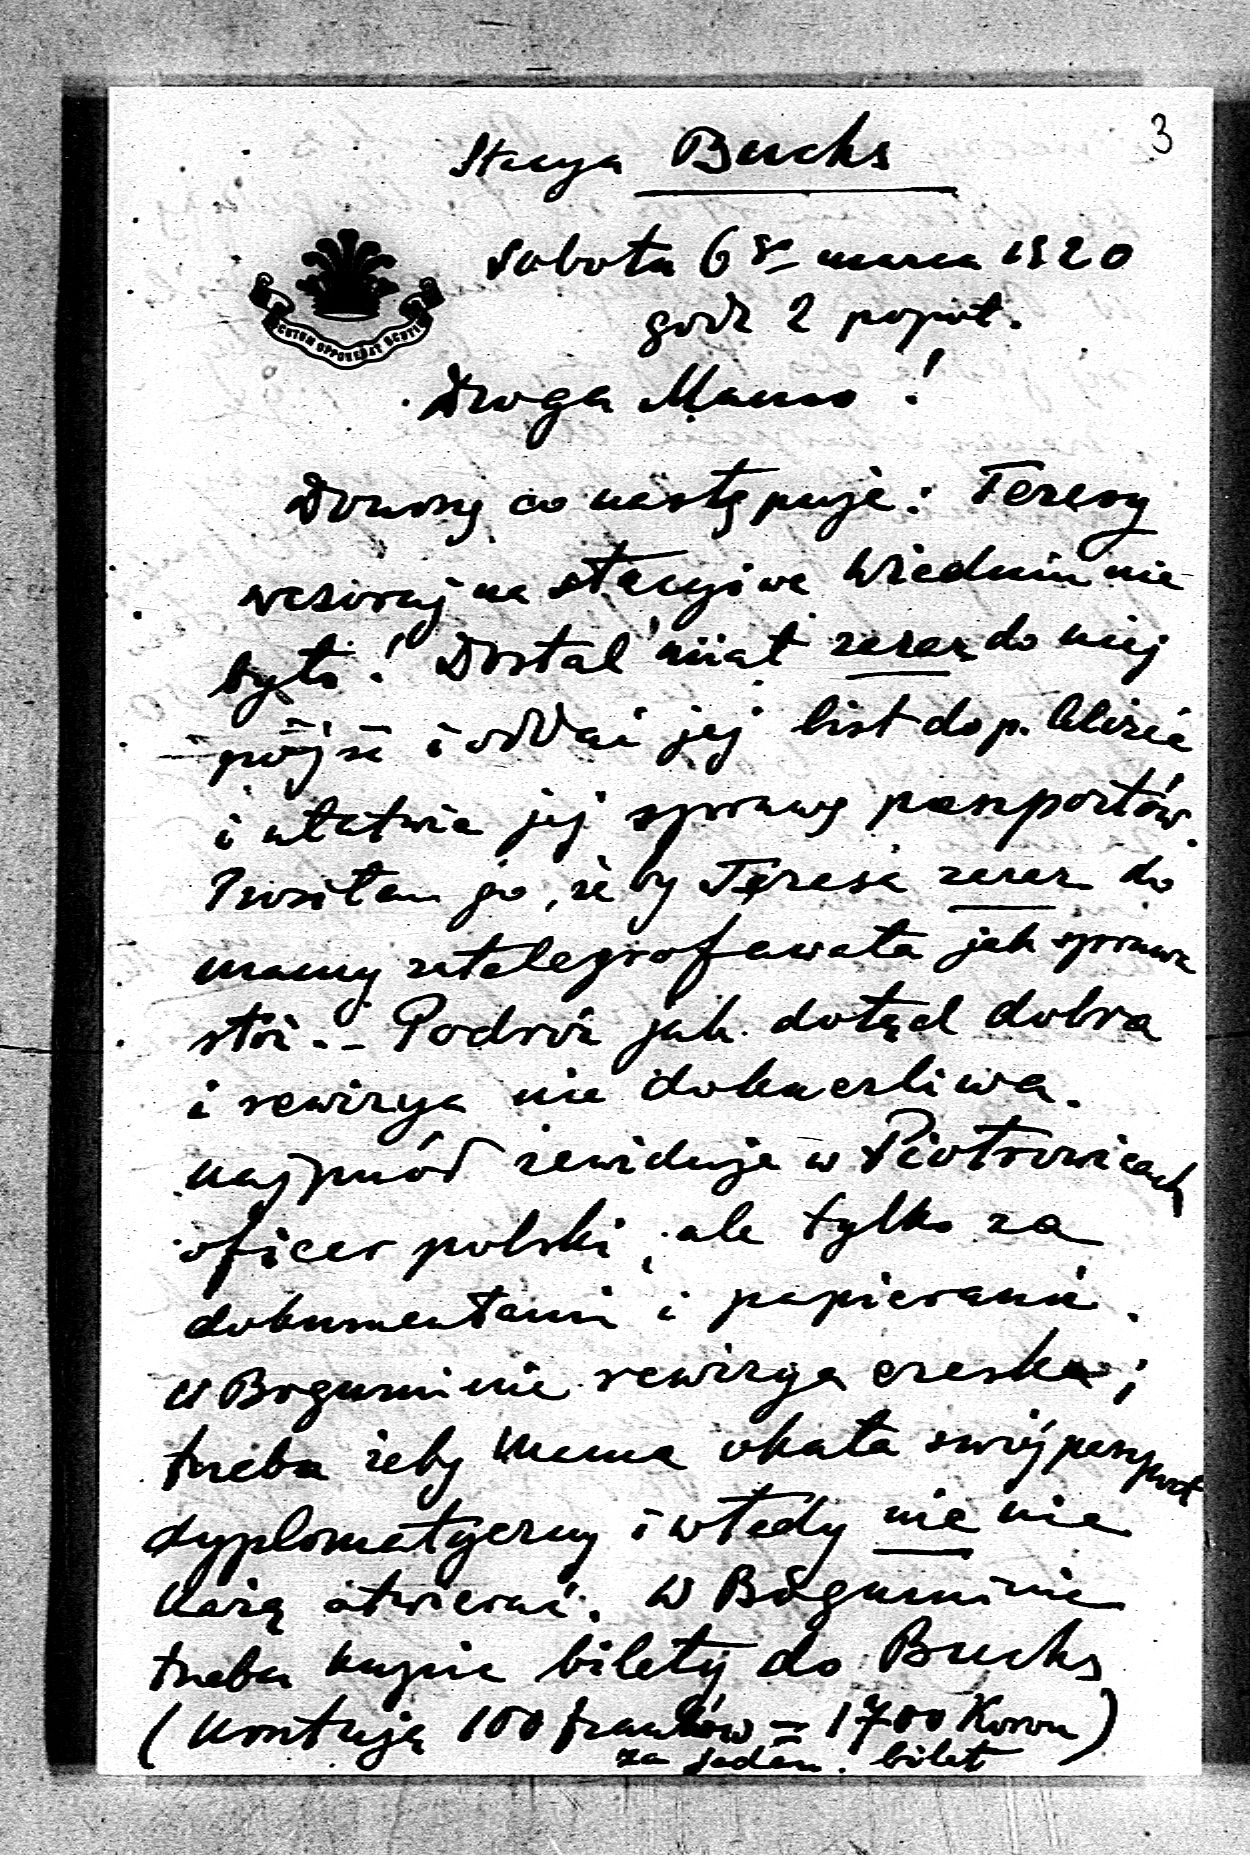 3
Stacya Bucks
sobota 6go marca 1920
godz 2 popoł.
SCUTUM OPPONEBAT SCUTIS
Droga Mamo!
Donoszę co następuje: Teresy
wczoraj na stacyi we Wiedniu nie
było! Dostal miał zaraz do niej
pójść i oddać jej list do p. Alizie
i ułatwić jej sprawę paszportów.
Prosiłam go, żeby Teresa zaraz do
mamy zatelegrafowała jak sprawa
stoi. – Podróż jak dotąd dobra
i rewizya nie dokuczliwa.
najprzód rewiduje w Piotrowicach
oficer polski, ale tylko za
dokumentami i papierami.
W Boguminie rewizya czeska;
trzeba żeby Mama okazała swój paszport
dyplomatyczny i wtedy nic nie
każą otwierać. W Boguminie
trzeba kupić bilety do Bucks
(kosztują 100 franków – 1700 Koron)
za jeden bilet